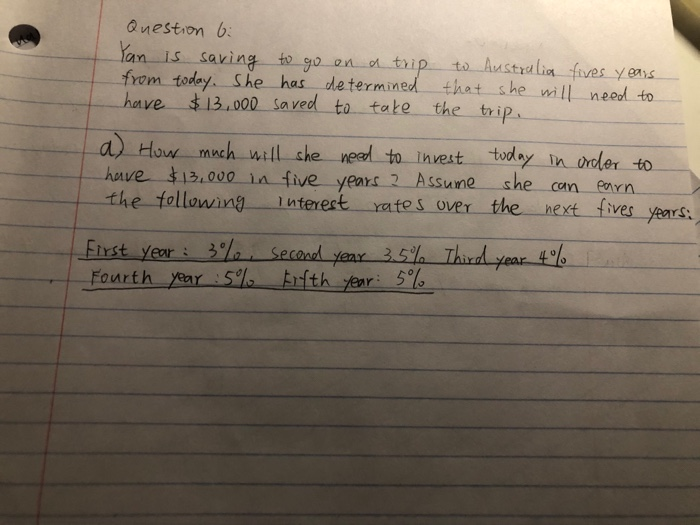 Question 6:
Yan is saving to go on a trip to Australia fives years
from today. She has determined that she will need to
have $13,000 saved to take the trip.
a) How much will she need to invest today in order to
have $13,000 in five years? Assume she can earn
the following interest rates over the next fives years:
First year: 3%, second year 3.5% Third year 4%
Fourth year: 5% Fifth year: 5%